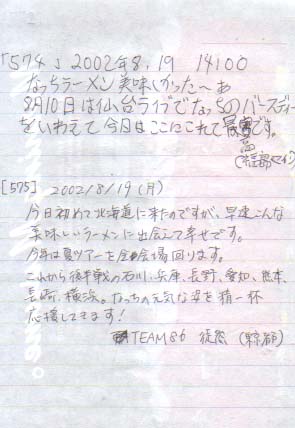 「574」 2002年8.19 14:00
なっちラーメン美味しかった〜あ
8月10日は仙台ライブでなっちのバースディー
をいわえて今日はここにこれて最高です。
[575] 2002/8/19(月)
今日初めて北海道に来たのですが、早速こんな
美味しいラーメンに出会えて幸せです。
今年は夏ツアーを全会場回ります。
これから後半戦の石川、兵庫、長野、愛知、熊本、
長崎、横浜。なっちの元気な姿を精一杯
応援してきます!
TEAM86 (東京都)